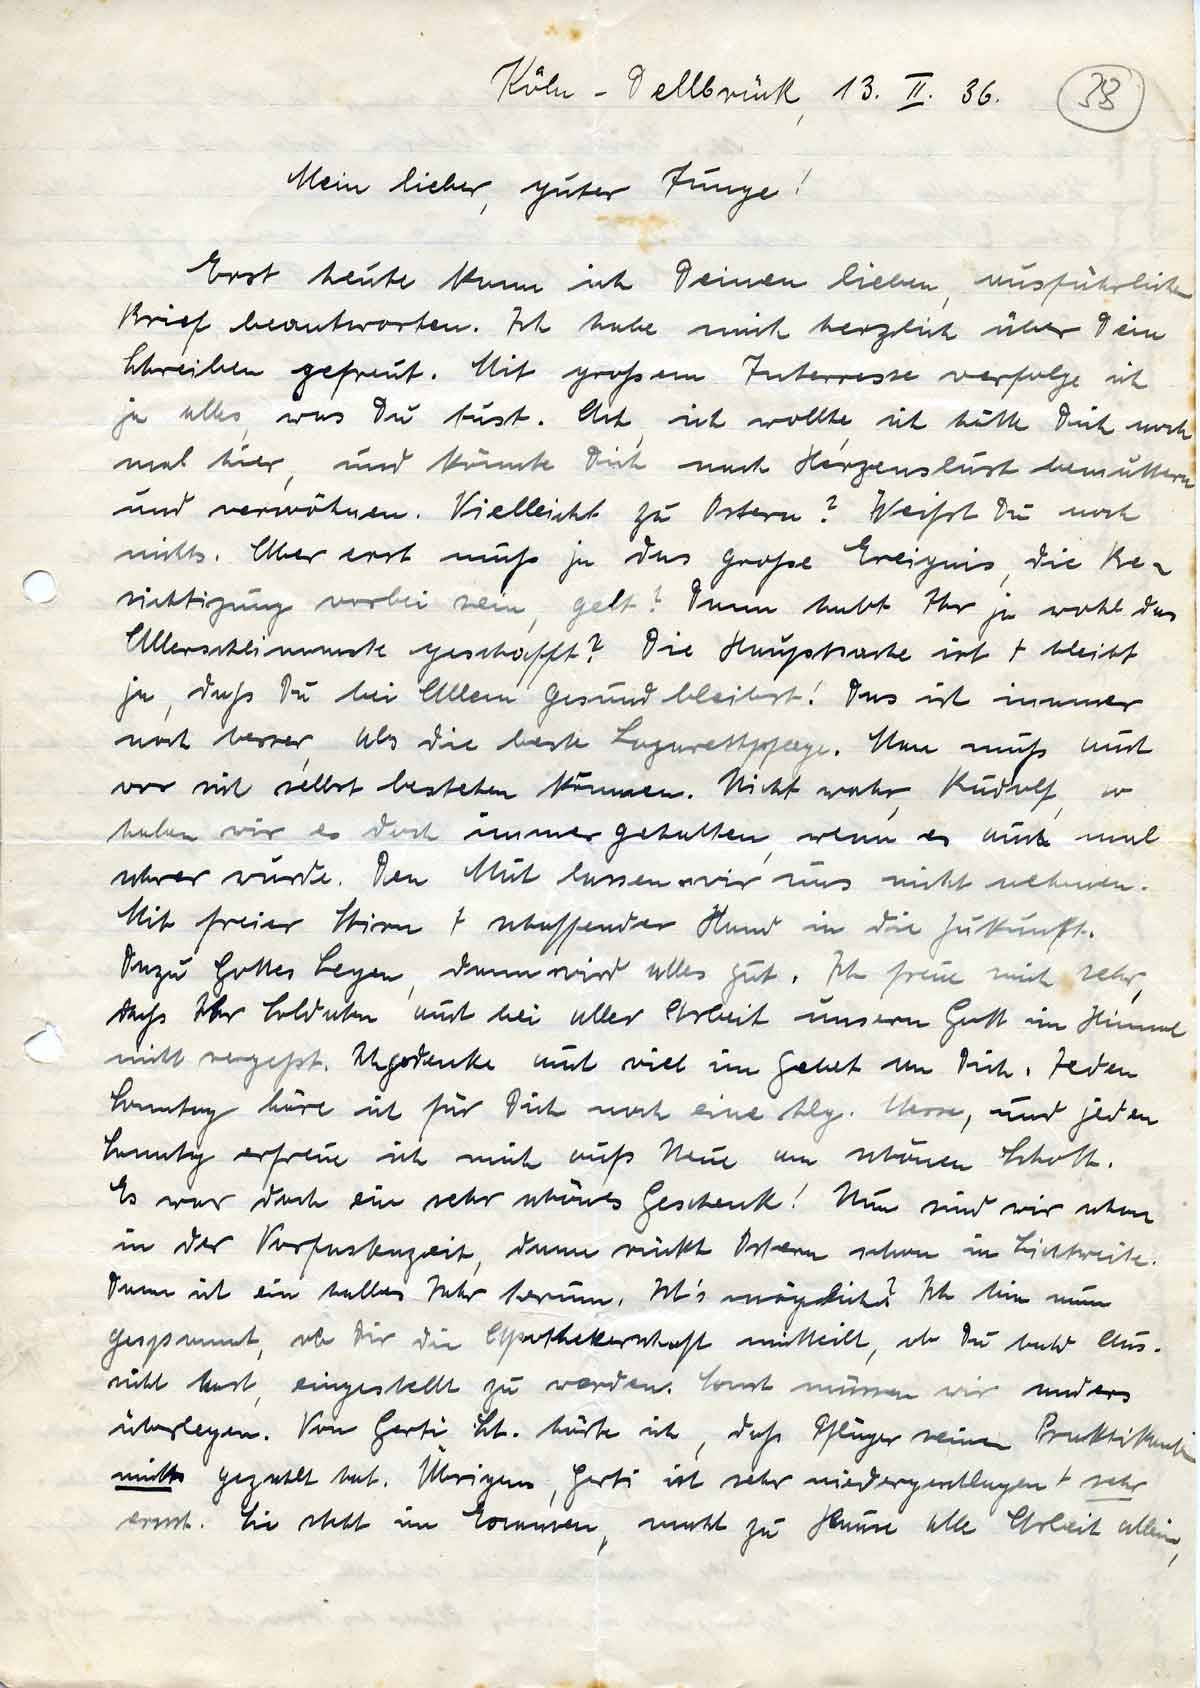 Köln - Dellbrück, 13. II. 36.
38
Mein lieber, guter Junge!
Erst heute kann ich Deinen lieben, ausführlichen
Brief beantworten. Ich habe mich herzlich über Dein
Schreiben gefreut. Mit großem Interresse verfolge ich
ja alles, was Du tust. Ach, ich wollte, ich hätte Dich noch
mal hier, und könnte Dich nach Herzenslust bemuttern
und verwöhnen. Vielleicht zu Ostern? Weißt Du noch
nichts. Aber erst muß ja das große Ereignis, die Be-
sichtigung vorbei sein, gelt? Dann habt Ihr ja wohl das
Allerschlimmste geschafft? Die Hauptsache ist + bleibt
ja, daß Du bei Allem gesund bleibst! Das ist immer
noch besser, als die beste Lazarettpflege. Man muß auch
vor sich selbst bestehen können. Nicht wahr, Rudolf, so
haben wir es doch immer gehalten, wenn es auch mal
schwer wurde. Den Mut lassen wir uns nicht nehmen.
Mit freier Stirn + schaffender Hand in die Zukunft.
Dazu Gottes Segen, dann wird alles gut. Ich freue mich sehr,
daß Ihr Soldaten auch bei aller Arbeit unsern Gott im Himmel
nicht vergeßt. Ich gedenke auch viel im Gebet an Dich. Jeden
Sonntag höre ich für Dich noch eine hlg. Messe, und jeden
Sonntag erfreue ich mich aufs Neue am schönen Schott.
Es war doch ein sehr schönes Geschenk! Nun sind wir schon
in der Vorfastenzeit, dann rückt Ostern schon in Sichtweite.
Dann ist ein halbes Jahr herum. Ist's möglich? Ich bin nun
gespannt, ob Dir die Apothekerschaft mitteilt, ob Du bald Aus-
sicht hast, eingestellt zu werden. Sonst müssen wir anders
überlegen. Von Gerti Sch. hörte ich, daß Pflüger seinen Praktikanten
nichts gezahlt hat. Übrigens, Gerti ist sehr niedergeschlagen + sehr
ernst. Sie steht im Examen, macht zu Hause alle Arbeit allein,